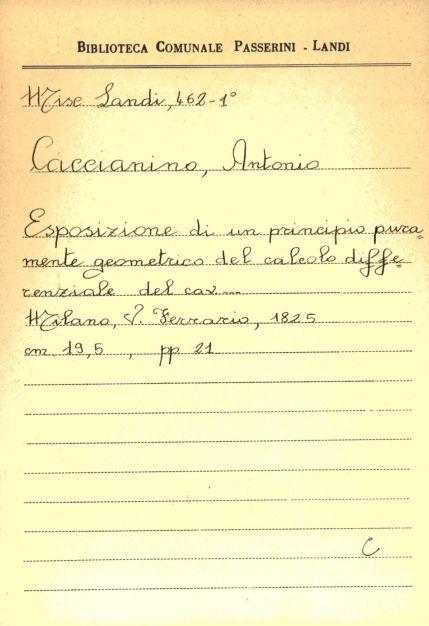 BIBLIOTECA COMUNALE PASSERINI - LANDI
Misc Landi, 462-1°
Caccianino, Antonio
Esposizione di un principio pura=
mente geometrico del calcolo diffe=
renziale del cav....
Milano, P. Ferrario, 1825
cm 19,5 , pp 21
C